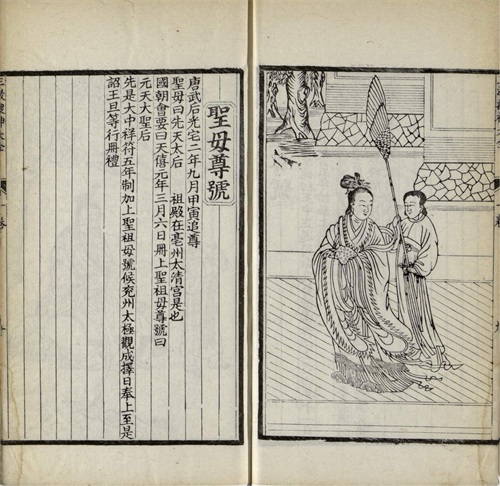 聖母尊號
唐武后光宅二年九月甲寅追尊
聖母曰先天太后　祖殿在亳州太清宮是也
國朝會要曰天僖元年三月六日冊上聖祖母尊號曰
元天大聖后
先是大中祥符五年制加上聖祖母號候兗州太極觀成擇日奉上至是
詔王旦等行冊禮